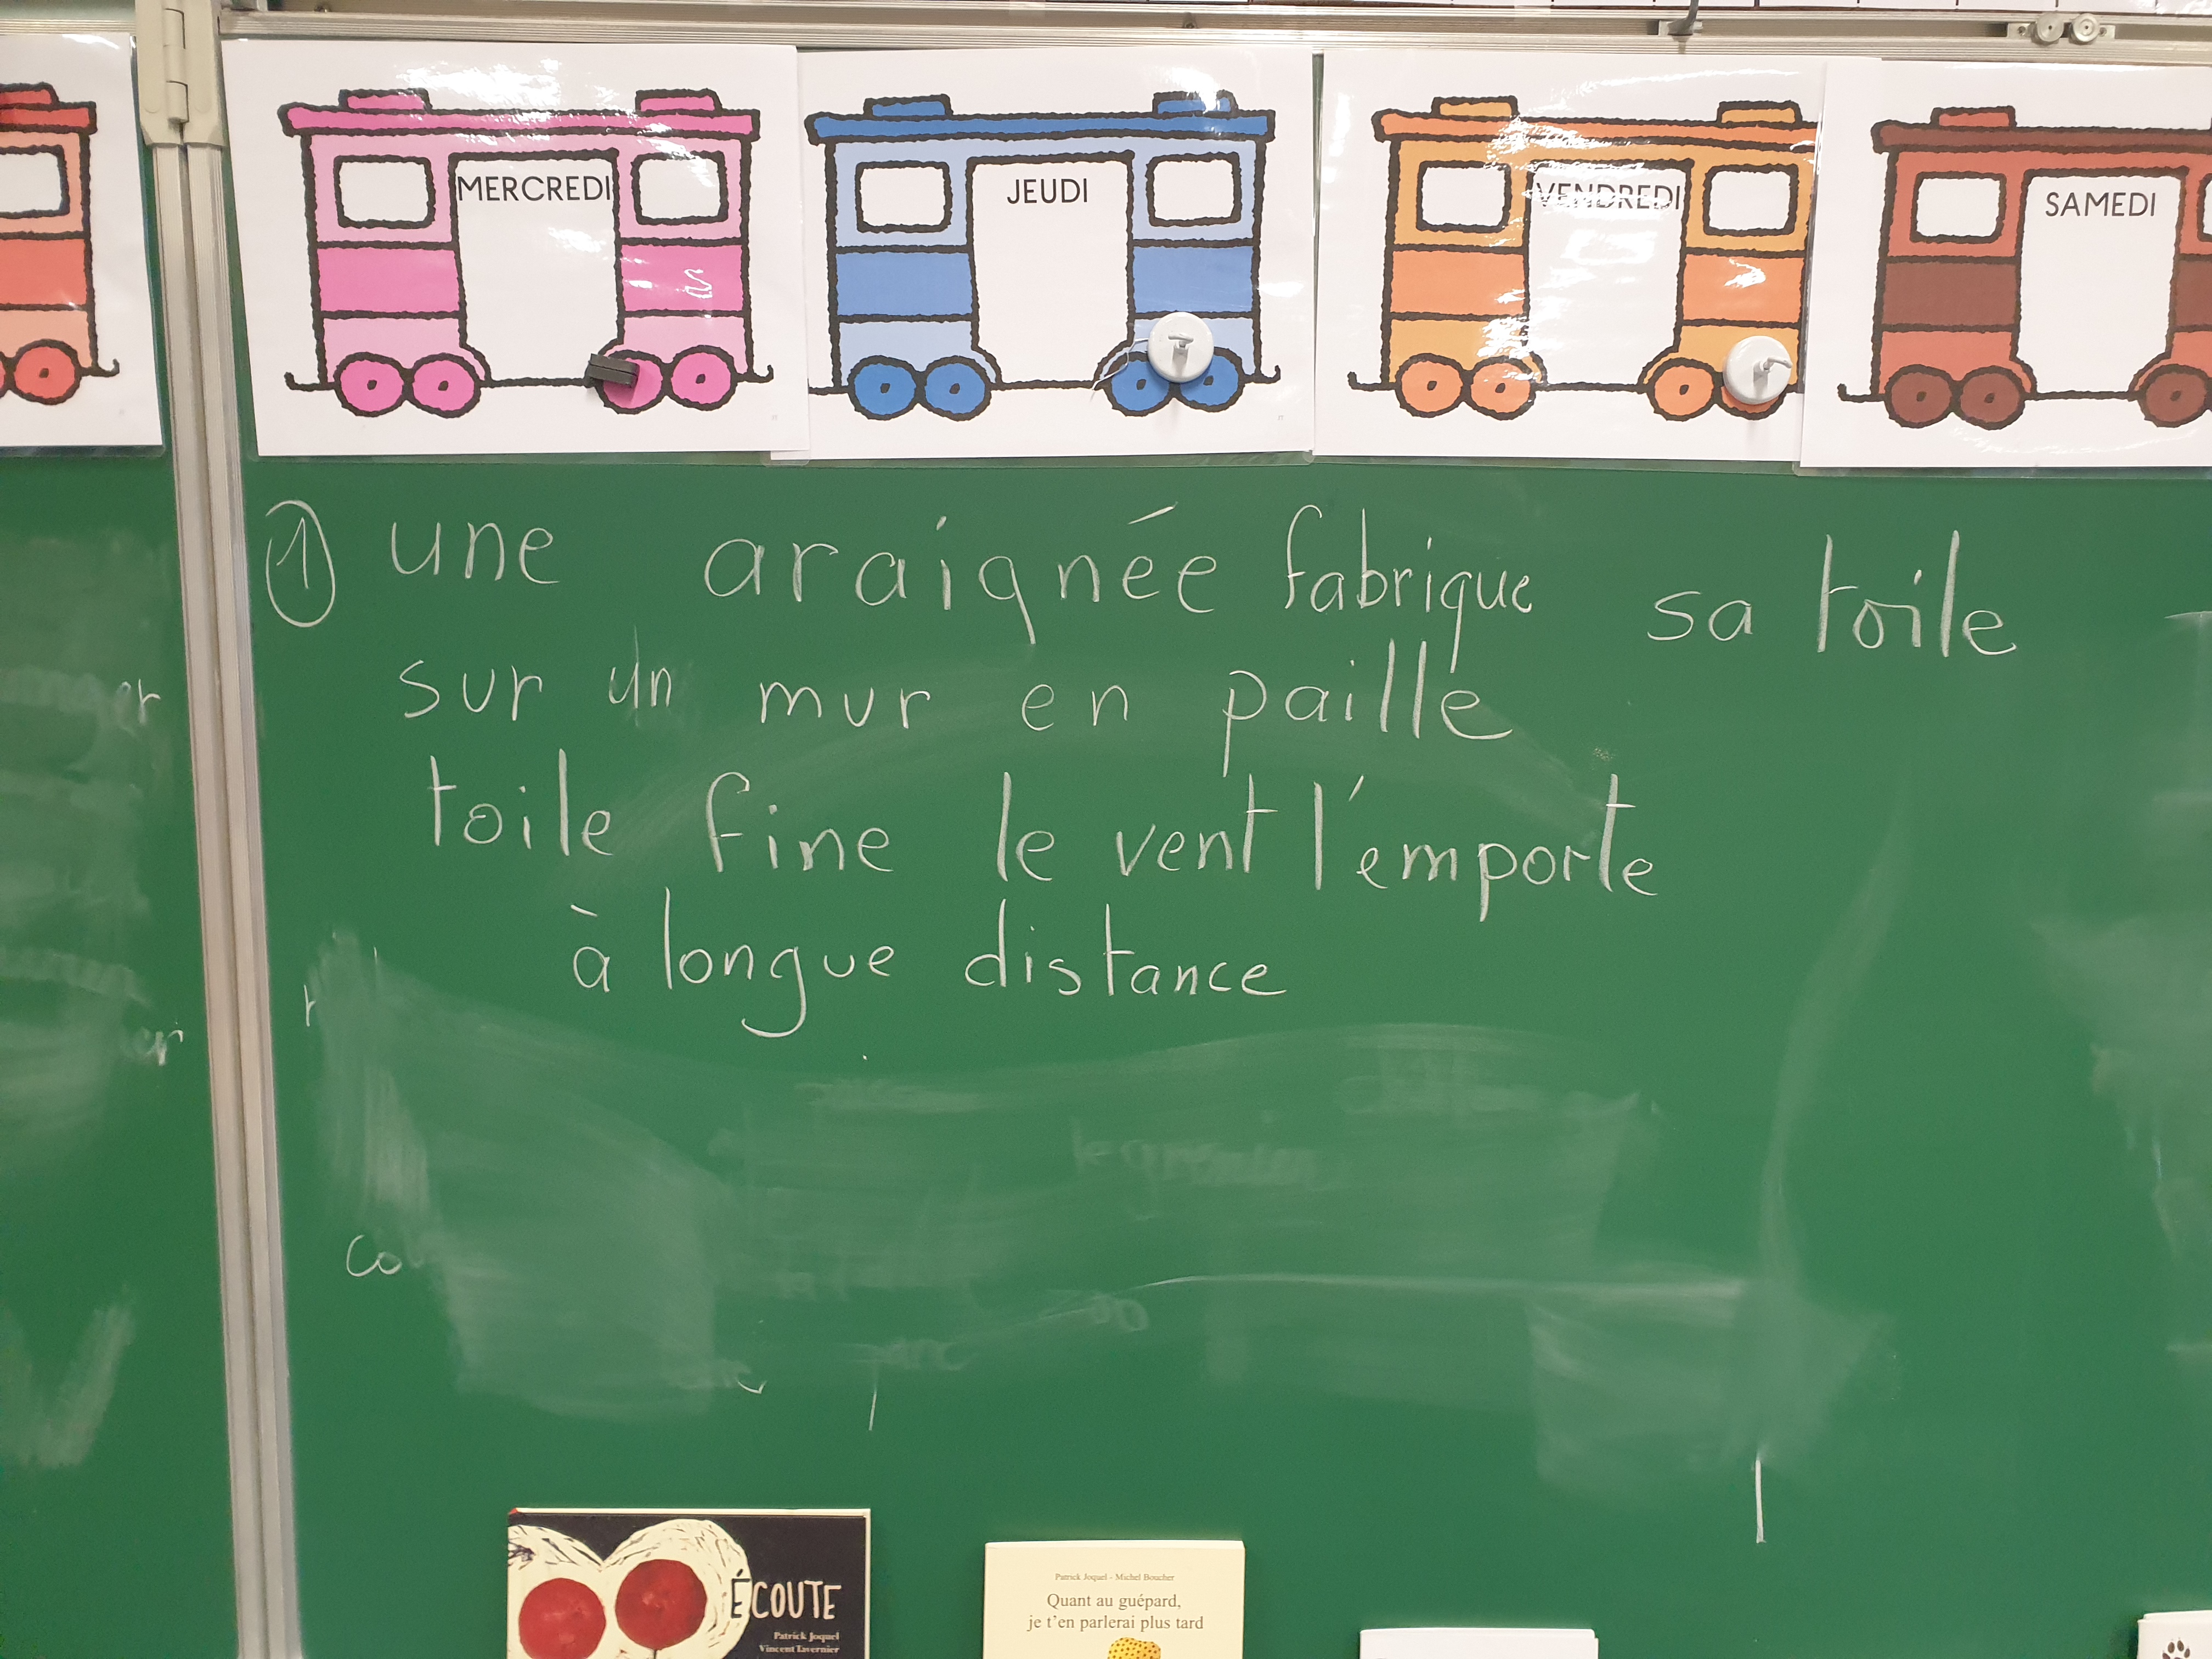 MERCREDI
JEUDI
VENDREDI
SAMEDI
1 une araignée fabrique sa toile
sur un mur en paille
toile fine le vent l'emporte
à longue distance
er
er
co
ÉCOUTE
Patrick Joquel
Vincent Tavernier
Patrick Joquel - Michel Boucher
Quant au guépard,
je t'en parlerai plus tard